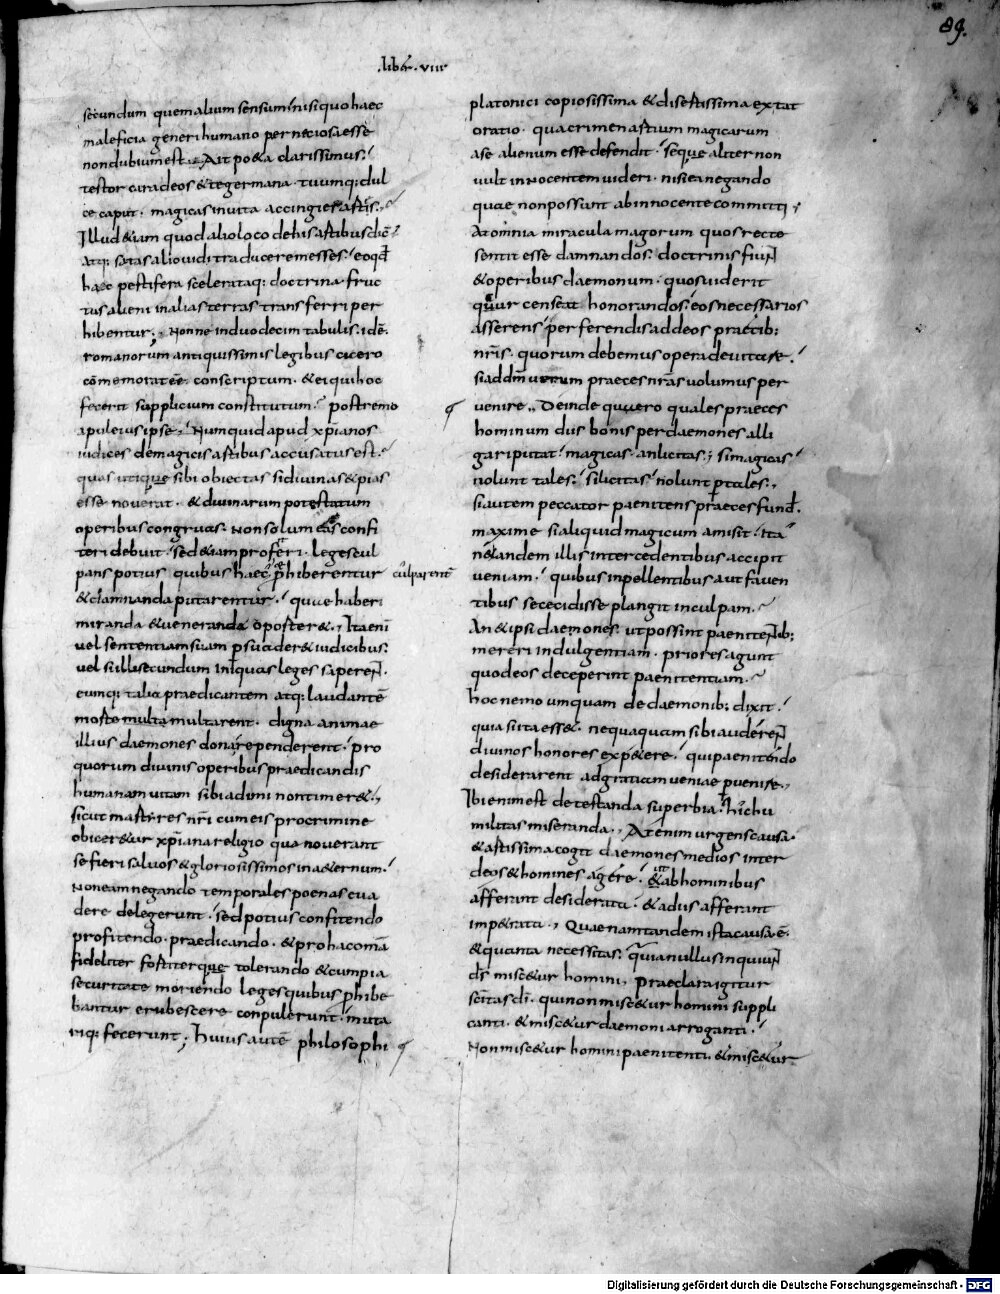 89.
liber · viii
secundum quem alium sensum nisi quo haec
maleficia generi humano perneciosa esse
non dubium est. Ait poeta clarissimus.
testor cara deos & te germana tuumq; dul
ce caput. magicas invita accingier artis.
Illud etiam quod alio loco de his artibus dic̄
atq; satas alio vidi traducere messes. eo qđ
haec pestifera scelerataq; doctrina fruc
tus alieni in alias terras transferri per
hibentur; Nonne in duodecim tabulis. idē
romanorum antiquissimis legibus cicero
cōmemorat eē conscriptum. & ei qui hoc
fecerit supplicium constitutum. postremo
apuleius ipse. Numquid apud xp̄ianos
iudices de magicis artibus accusatus est.
quas utique sibi obiectas si divinas & pias
esse noverat. & divinarum potestatum
operibus congruas. Non solum eas confi
teri debuit. sed etiam proferri. leges cul
pans potius quibus haec phiberentur culparent
& damnanda putarentur. quae haberi
miranda & veneranda oporter&. Ita enī
vel sententiam suam psuader& iudicibus.
vel si illi secundum iniquas leges saperen̄t.
eumq; talia praedicantem atq; laudantē
morte multa multarent. digna animae
illius daemones dona rependerent. pro
quorum divinis operibus praedicandis
humanam vitam sibi adimi non timer&.
sicut martires nr̄i cum eis pro crimine
obicer&ur xp̄iana religio qua noverant
se fieri salvos & gloriosissimos in a&ernum.
Non eam negando temporales poenas eva
dere delegerunt. sed potius confitendo
profitendo. praedicando. & pro hac omā
fideliter fortiterque tolerando & cum pia
securitate moriendo leges quibus phibe
bantur erubescere conpulerunt. muta
riq; fecerunt; huius autē philosophi
platonici copiosissima & disertissima extat
oratio. qua crimen artium magicarum
a se alienum esse defendit. seque aliter non
vult innocentem videri. nisi ea negando
quae non possunt ab innocente committi.
At omnia miracula magorum quos recte
sentit esse damnandos. doctrinis fiun̄t
& operibus daemonum. quos viderit
quur censeat honorandos. eos necessarios
asserens perferendis ad deos praecib;
nr̄is. quorum debemus opera devitare.
si ad dm̄ verum praeces nr̄as volumus per
venire. Deinde quero quales praeces
hominum diis bonis per daemones alli
gari putat. magicas. an licitas; si magicas
nolunt tales. si licitas nolunt p tales.
si autem peccator paenitens praeces fund̄.
maxime si aliquid magicum amisit. Ita
n&andem illis intercedentibus accipit
veniam. quibus inpellentibus aut faven
tibus se cecidisse plangit in culpam.
An & ipsi daemones. ut possint paeniten̄tib;
mereri indulgentiam. priores agunt
quod eos deceperint paenitentiam.
hoc nemo umquam de daemonib; dixit.
quia si ita ess&. nequaquam sibi auderen̄t
divinos honores exp&ere. qui paenitendo
desiderarent ad gratiam veniae pvenire.
Ibi enim est detestanda superbia. hic hu
militas miseranda. At enim urgens causa.
& artissima cogit daemones medios inter
deos & homines agere. ut & ab hominibus
afferant desiderata. & a diis afferant
imp&rata. Quae nam tandem ista causa ē.
& quanta necessitas. quia nullus inquiun̄t
d̄s misc&ur homini. Praeclara igitur
scītas dī. qui non misc&ur homini suppli
canti. & misc&ur daemoni arroganti.
Non misc&ur homini paenitenti. & misc&ur
Digitalisierung gefördert durch die Deutsche Forschungsgemeinschaft · DFG